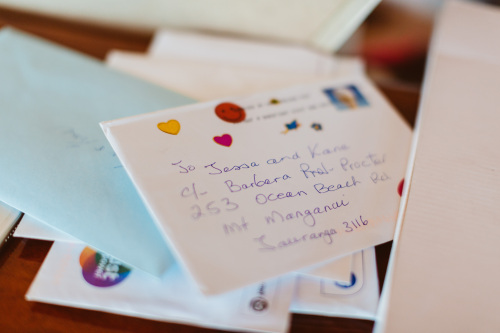 To Jessa and Kana
c/- Barbara Prot-Proctor
253 Ocean Beach Rd
Mt Manganui
Tauranga 3116